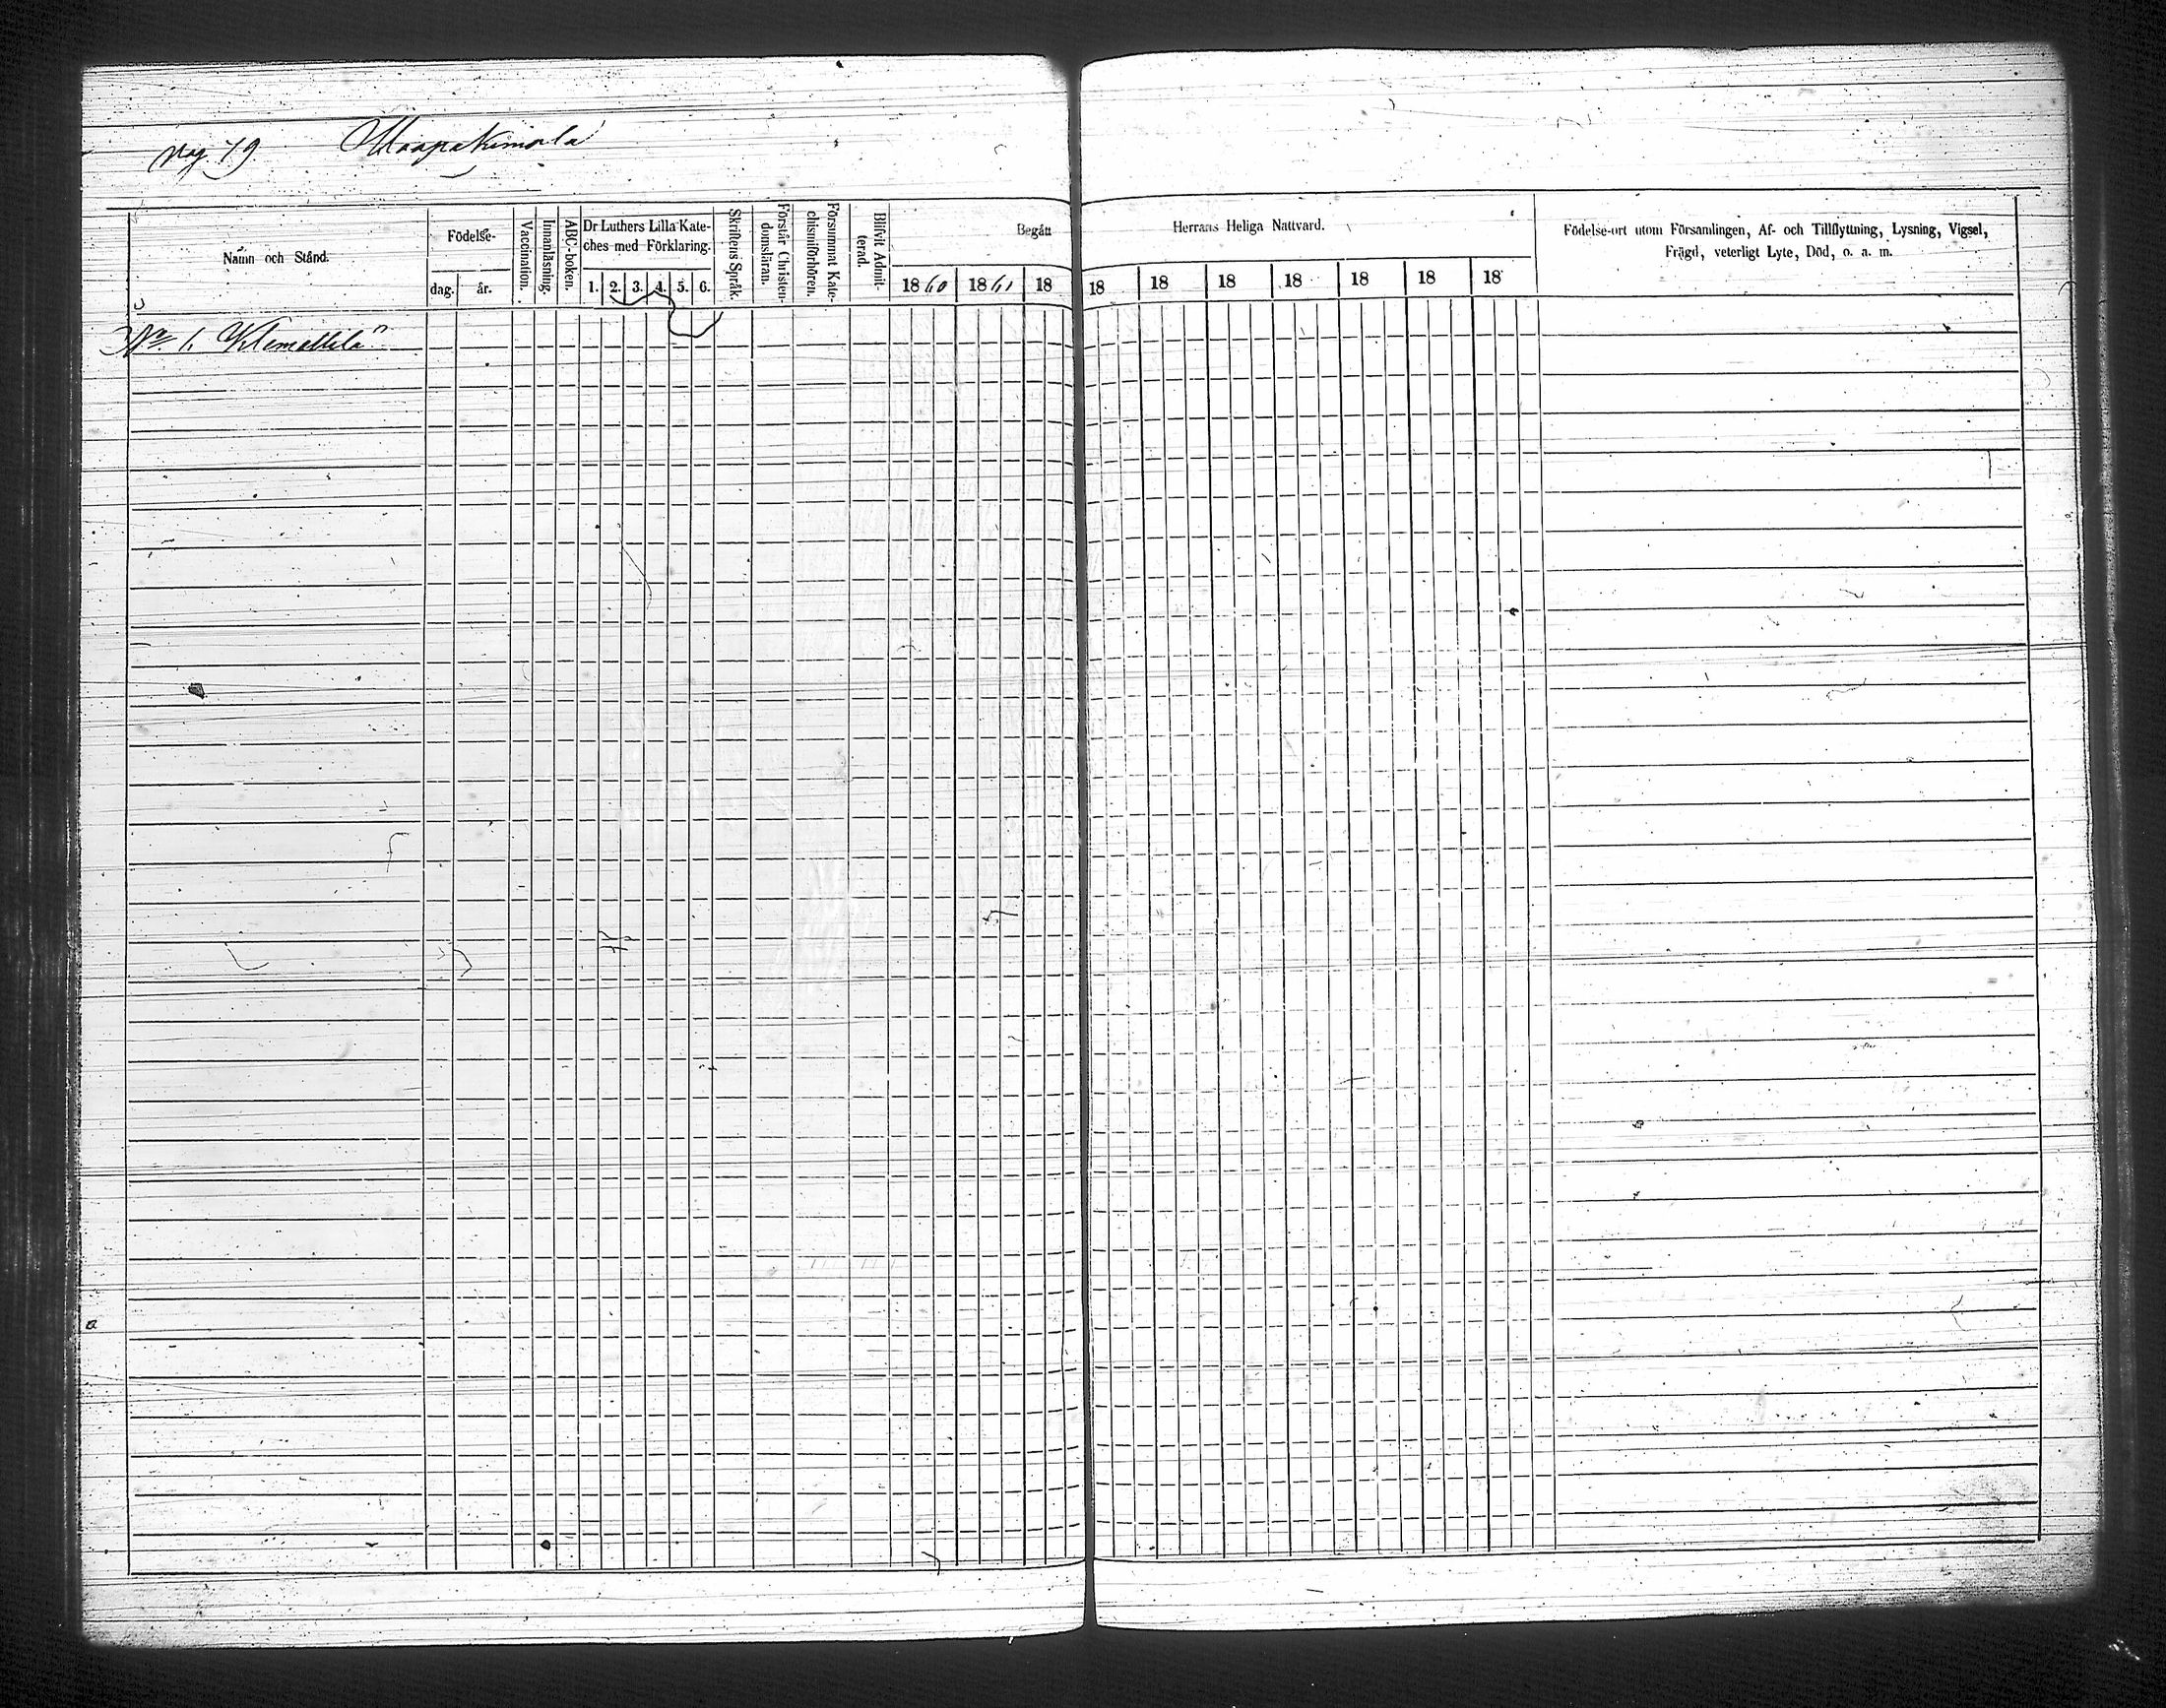 pag. 79 Maapakimola
Namn och Stånd.
Födelse-
dag. år.
Vaccination.
Innanläsning.
ABC-boken.
Dr Luthers Lilla Kate-
ches med Förklaring.
1. 2. 3. 4. 5. 6.
Skriftens Språk.
Förstår Christen-
domsläran.
Försummat Kate-
chismiförhören.
Blifvit Admit-
terad.
Begått Herrans Heliga Nattvard.
1860 1861 18 18 18 18 18 18 18 18
Födelse-ort utom Församlingen, Af- och Tillflyttning, Lysning, Vigsel,
Frägd, veterligt Lyte, Död, o. a. m.
No 1. Klemettilä